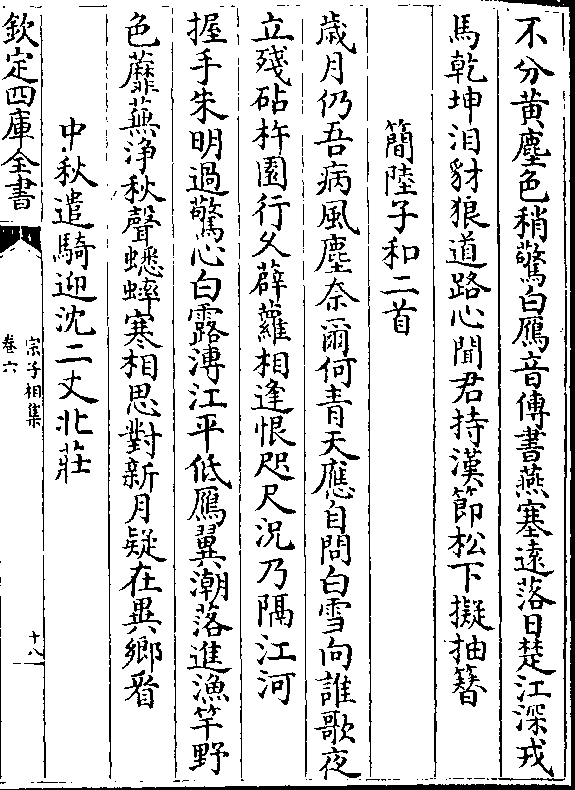 不分黄塵色稍驚白鴈音傳書燕塞逺落日楚江深戎
馬乾坤泪豺狼道路心聞君持漢節松下擬抽簮
簡陸子和二首
歳月仍吾病風塵奈爾何青天應自問白雪向誰歌夜
立殘砧杵園行久薜蘿相逢恨咫尺况乃隔江河
握手朱明過驚心白露漙江平低鴈翼潮落進漁竿野
色蘼蕪浄秋聲蟋蟀寒相思對新月疑在異鄉看
中秋遣騎迎沈二丈北莊
欽定四庫全書
宗子相集
卷六
十八